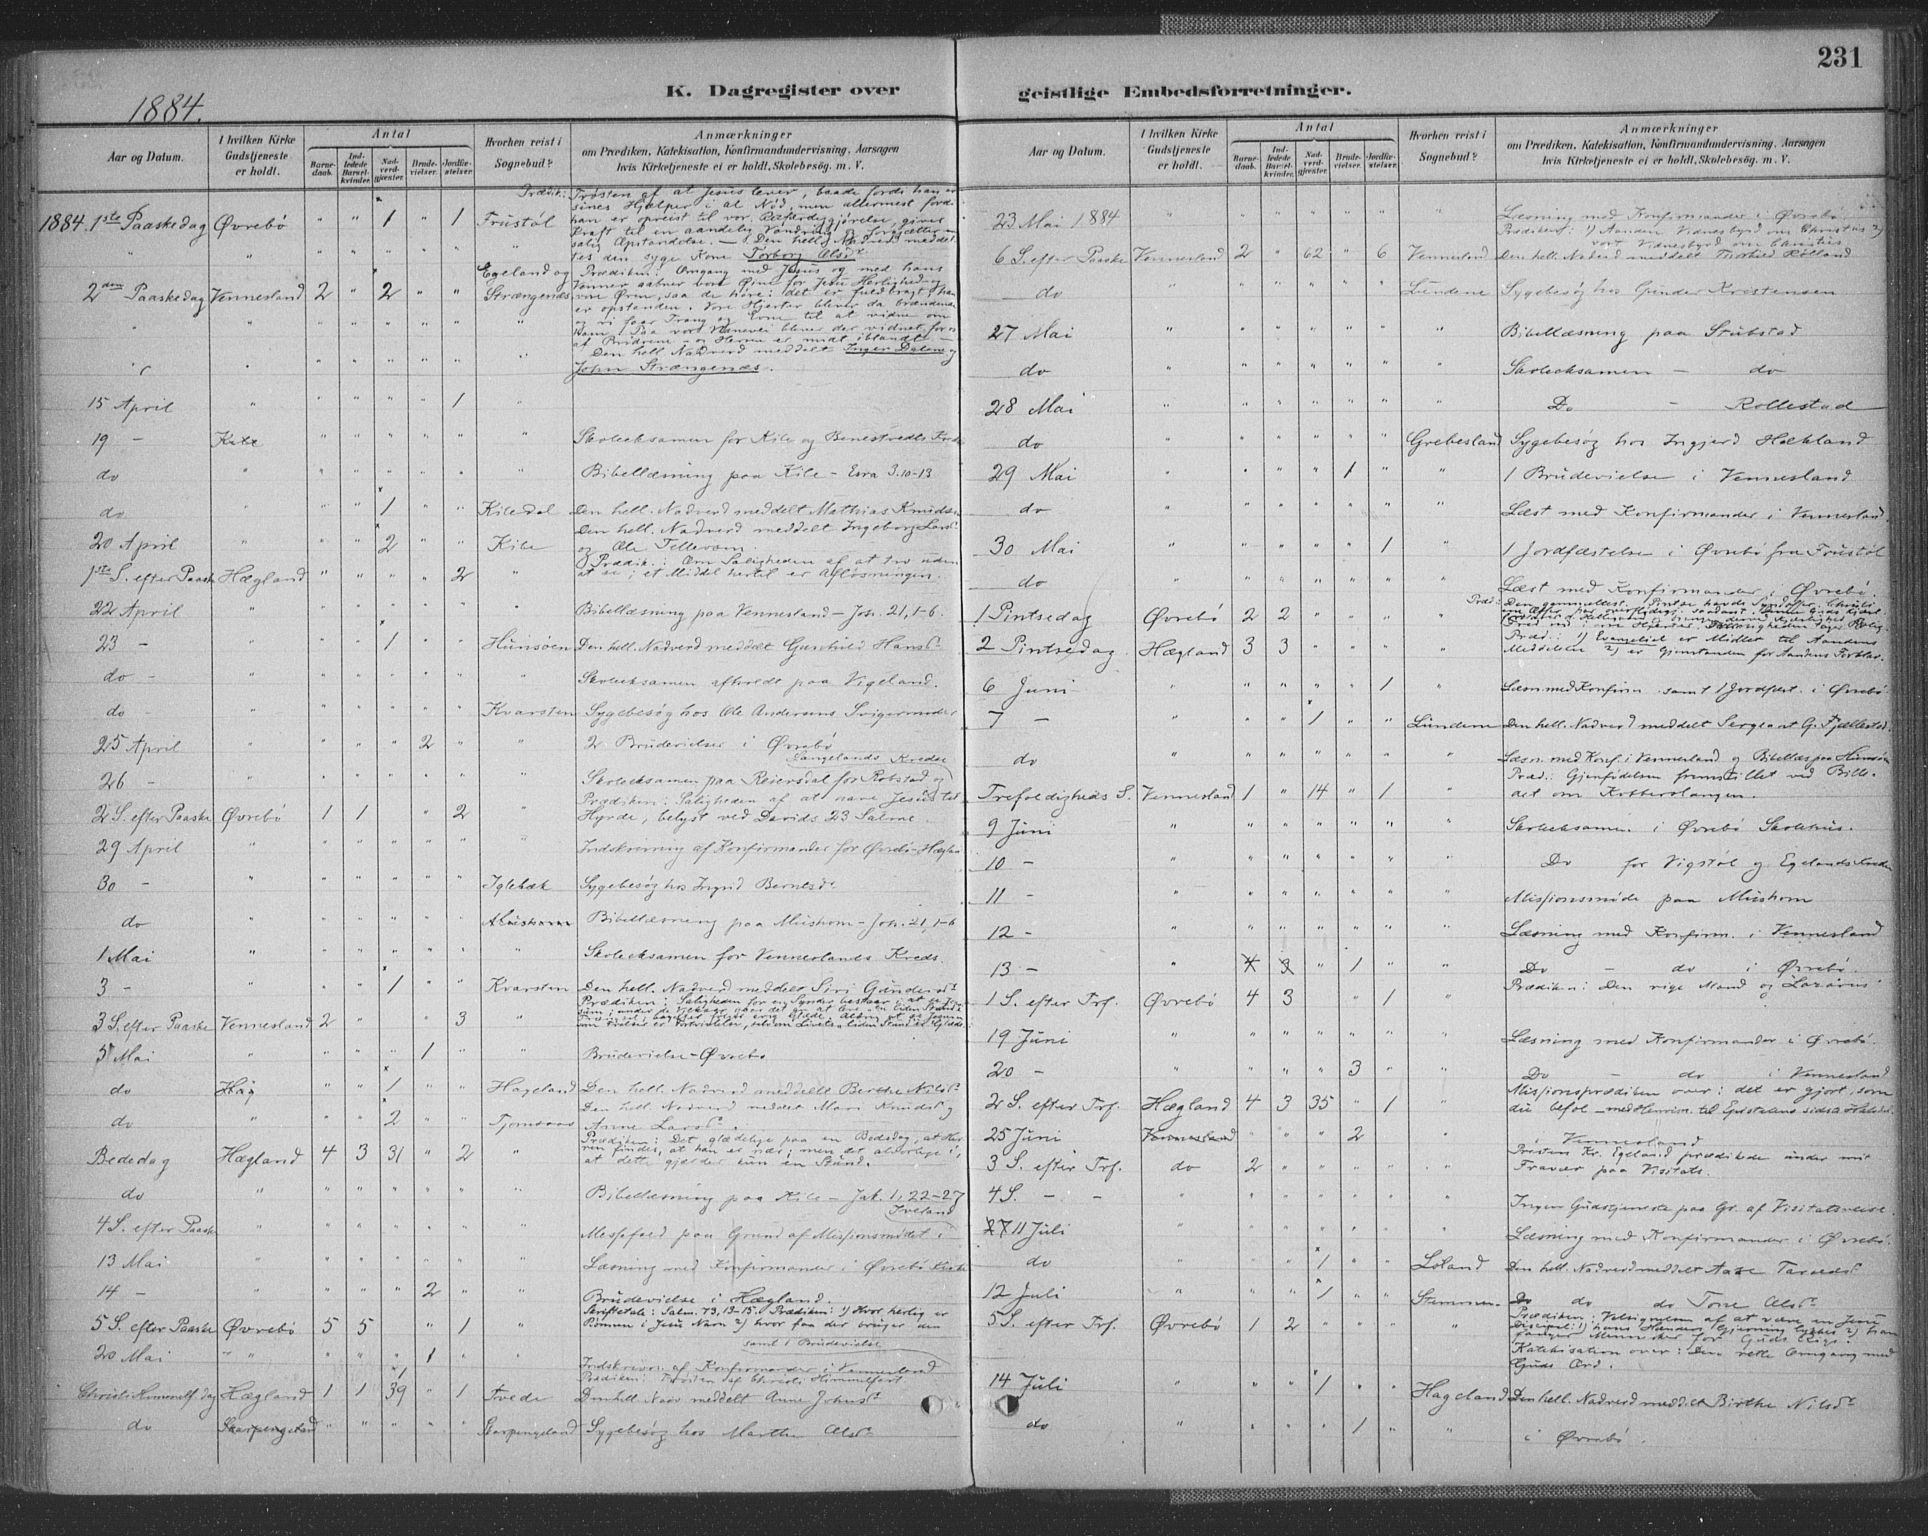 231
K. Dagregister over
geistlige Embedsforretninger.
1884.
Aar og Datum.
I hvilken Kirke Gudstjeneste er holdt.
Antal
Barnedaab.
Indledede Barselkvinder.
Nadverdgjester.
Brudevielser.
Jordfæstelser.
Hvorhen reist i Sognebud?
Anmærkninger
om Prædiken, Katekisation, Konfirmandundervisning, Aarsagen
hvis Kirketjeneste ei er holdt, Skolebesøg. m. V.
1884. 1ste Paaskedag Øvrebø " " 1 " 1 Frustøl
Prædik.: Trøsten af at Jesus lever, baade fordi han er
sines Hjælper i al Nød, men allermest fordi
han er opreist til vor Retfærdiggjørelse, giver
Kraft til en aandelig Vandring og forsjætter
salig Opstandelse. – Den hell. Nadverd meddel
tes den syge Kone Torborg Olsdr.
2den Paaskedag Vennesland 2 " 2 " " Egeland og Strængenæs
Prædiken: Omgang med Jesus og med hans
Venner aabner vore Øine for Jesu Herlighed og
vore Øren, saa de høre: det er fuldbragt, han
er opstanden. Vore Hjerter bliver da brændende
og vi faar Trang og Evne til at vidne om
Den hell. Nadverd meddelt Inger Dalen og
John Strængenæs.
15 April " " " " " 1 "
19 – Kile " " " " " " Skoleeksamen for Kile og Benestvedts Kreds
do " " " " " " " Bibellæsning paa Kile – Esra 3. 10-13
do " " " 1 " " Kiledal Den hell. Nadverd meddelt Mathias Knudsen
20 April " " " 2 " " Kile Den hell. Nadverd meddelt Ingeborg Larsd.
og Ole Tellevsen.
1ste S. efter Paaske Hægland " " " " 2 " Prædik.: Om Saligheden af at tro uden
at se; et Middel hertil er Afløsningen.
22 April " " " " " " " Bibellæsning paa Vennesland – Joh. 21, 1-6.
23 – " " " 1 " " Hunsøen Den hell. Nadverd meddelt Gunhild Hansdr.
do – " " " " " " " Skoleeksamen afholdt paa Vigeland.
do – " " " " " " Kvarsten Sygebesøg hos Ole Andersens Svigermoder
25 April " " " " 2 " " 2 Brudevielser i Øvrebø
26 – " " " " " " " Skoleeksamen paa Reiersdal for Robstad og
Langelands Kredse
2 S. efter Paaske Øvrebø 1 1 " 2 " Prædiken: Saligheden af at have Jesus til
Hyrde, belyst ved Davids 23 Salme.
29 April " " " " " " " Indskrivning af Konfirmander for Øvrebø-Hægland
30 – " " " " " " Iglebæk Sygebesøg hos Ingrid Berntsdr.
do " " " " " " Mushom Bibellæsning paa Mushom – Joh. 21, 1-6
1 Mai " " " " " " " Skoleeksamen for Venneslands Kreds.
3 – " " " 1 " " Kvarsten Den hell. Nadverd meddelt Siri Gundersdr.
3 S. efter Paaske Vennesland 2 " " 3 " Prædiken: Saligheden for en Synder bestaar i at se Jesus
5 Mai " " " " 1 " " Brudevielse – Øvrebø
do Hæg " " 1 " " Hageland Den hell. Nadverd meddelt Berthe Nilsdr.
do " " " 2 " " Tjomsaas Den hell. Nadverd meddelt Mari Knudsd. og
Anne Larsd.
Bededag Hægland 4 3 31 " 2 " Prædiken: Det glædelige paa en Bededag, at Her
ren findes, at han er nær; men det alvorlige i,
at dette gjælder kun en Stund.
do " " " " " " " Bibellæsning paa Kile – Jak. 1, 22-27
4 S. efter Paaske " " " " " " " Messefald paa Grund af Missionsmødet i
Iveland
13 Mai " " " " " " " Læsning med Konfirmander i Øvrebø Kirke
14 – " " " " 2 " " Brudevielse i Hægland.
5 S. efter Paaske Øvrebø 5 5 " 1 " Skriftetale: Salm. 73, 13-15. Prædiken: 1) Hvor herlig er
Bønnen i Jesu Navn 2) hvor faa der bruger den
20 Mai " " " " 1 " " samt 1 Brudevielse
Indskrivn. af Konfirmander i Vennesland
Christi Himmelf. dag Hægland 1 1 39 " 1 Tvede Prædiken: Frugten af Christi Himmelfart
Den hell. Nadv meddelt Anne Johnsd.
do Skarpengeland " " " " " Skarpengeland Sygebesøg hos Marthe Olsdr.
Aar og Datum.
I hvilken Kirke Gudstjeneste er holdt.
Antal
Barnedaab.
Indledede Barselkvinder.
Nadverdgjester.
Brudevielser.
Jordfæstelser.
Hvorhen reist i Sognebud?
Anmærkninger
om Prædiken, Katekisation, Konfirmandundervisning, Aarsagen
hvis Kirketjeneste ei er holdt, Skolebesøg. m. V.
23 Mai 1884 " " " " " " " Læsning med Konfirmander i Øvrebø
6 S. efter Paaske Vennesland 2 " 62 " 6 Vennesland Prædiken: 1) Aanden Vidnesbyrd om Christus 2)
vort Vidnesbyrd om Christus
Den hell. Nadverd meddelt Torkild Rølland
do " " " " " " Lundene Sygebesøg hos Gunder Kristensen
27 Mai " " " " " " " Bibellæsning paa Stubstad
do " " " " " " " Skoleeksamen – do
28 Mai " " " " " " " Do – Rollestad
do " " " " " " Grebesland Sygebesøg hos Ingjerd Hækland
29 Mai " " " " 1 " " 1 Brudevielse i Vennesland
do " " " " " " " Læst med Konfirmander i Vennesland.
30 Mai " " " " " 1 " 1 Jordfæstelse i Øvrebø fra Frustøl
do " " " " " " " Læst med Konfirmander i Øvrebø.
1 Pintsedag Øvrebø 2 2 " " " "
2 Pintsedag Hægland 3 3 " " " " Præd.: 1) Evangeliet er Midlet til Aandens
Meddelelse 2) er Gjenstanden for Aandens Forklar.
6 Juni " " " " " 1 " Læsn. med Konfirm. samt 1 Jordfæst. i Øvrebø
7 – " " " 1 " " Lundene Den hell. Nadverd meddelt Sergeant G. Fjellestad
do " " " " " " " Læsn. med Konf. i Vennesland og Bibellæs. paa Hunsøen
Trefoldigheds S. Vennesland 1 " 14 " 1 " Præd.: Gjenfødelsen fremstillet ved Bille-
det om Kobberslangen.
9 Juni " " " " " " " Skoleeksamen i Øvrebø Skolehus.
10 – " " " " " " " Do for Vigstøl og Egelands Kredse
11 – " " " " " " " Missionsmøde paa Mushom
12 – " " " " " " " Læsning med Konfirm. i Vennesland
13 – " 4 3 " 1 " " Do – do i Øvrebø.
1 S. efter Trf. Øvrebø 4 3 " 1 " Prædiken: Den rige Mand og Lazarus
19 Juni " " " " " " " Læsning med Konfirmander i Øvrebø.
20 – " " " " 3 " " Do – do i Vennesland
2 S. efter Trf. Hægland 4 3 35 " 1 " Missionsprædiken over: det er gjort, som
du befol
25 Juni Vennesland " " " 2 " " i Vennesland
3 S. efter Trf. do 2 " " " " " Presten Kr. Egeland prædikede under mit
Fravær paa Visitats.
4 S. – – " " " " " " " Ingen Gudstjeneste paa Gr. af Visitatsreise.
27 11 Juli " " " " " " " Læsning med Konfirmander i Øvrebø.
do " " " 1 " " Loland Den hell. Nadverd meddelt Aase Tarjedsdr.
12 Juli " " " 1 " " Stemmen Do do do Tone Olsdr.
5 S. efter Trf. Øvrebø 1 2 " " " " Prædiken: Velsignelsen af at være en Jesu
Discipel: 1) hans Hænders Gjerning lykkes 2) han
fanger Mennesker for Guds Rige.
Katekisation over: Den rette Omgang med
Guds Ord.
14 Juli " " " 1 " " Hageland Den hell. Nadverd meddelt Birthe Nilsdr.
do " " " " 1 " " i Øvrebø.